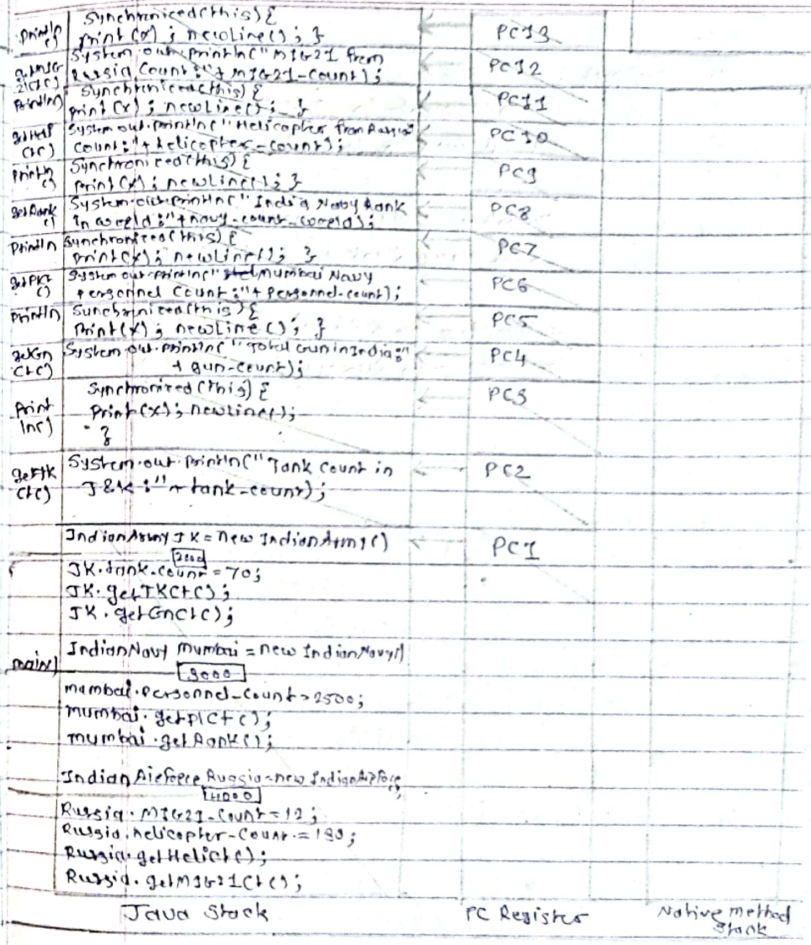 Synchronized(this){
println() print(x); newLine(); } PC13
System.out.println("MIG21 from
getMIG21Ct() Russia Count:"+MIG21-count); PC12
Synchronized(this){
Println() print(x); newLine(); } PC11
getHeli Ct() System.out.println("Helicopter from Russia
count:"+helicopter-count); PC10
Println() Synchronized(this){
print(x); newLine(); } PC9
getRank() System.out.println("India Navy Rank
in world:"+navy-count-world); PC8
Println Synchronized(this){
print(x); newLine(); } PC7
getPKt() System.out.println(" Mumbai Navy
personnel Count:"+personnel-count); PC6
Println Synchronized(this){
Print(x); newLine(); } PC5
getGn Ct() System.out.println("Total Gun in India:"
+gun-count); PC4
Synchronized(this){ PC3
Print ln() Print(x); newLine();
}
getTK Ct() System.out.println("Tank Count in PC2
J&K:"+tank-count);
IndianArmy JK=new IndianArmy() PC1
2000
JK.tank-count=70;
JK.getTKCt();
JK.getGnCt();
main() IndianNavy Mumbai=new IndianNavy()
3000
mumbai.personnel-count=2500;
mumbai.getPKt();
mumbai.getRank();
IndianAirforce Russia=new IndianAirforce
4000
Russia.MIG21-Count=12;
Russia.helicopter-Count=
Russia.getHeliCt();
Russia.getMIG21Ct();
Java Stack PC Register Native method
Stack